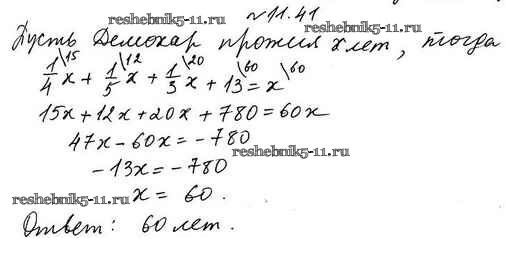 reshebnik5-11.ru №11.41
Пусть Демохар прожил x лет, тогда
1/4\15 x + 1/5\12 x + 1/3\20 x + 13\60 = x\60
15x + 12x + 20x + 780 = 60x
reshebnik5-11.ru
47x - 60x = -780
reshebnik5-11.ru
-13x = -780
reshebnik5-11.ru
x = 60.
reshebnik5-11.ru
Ответ: 60 лет.